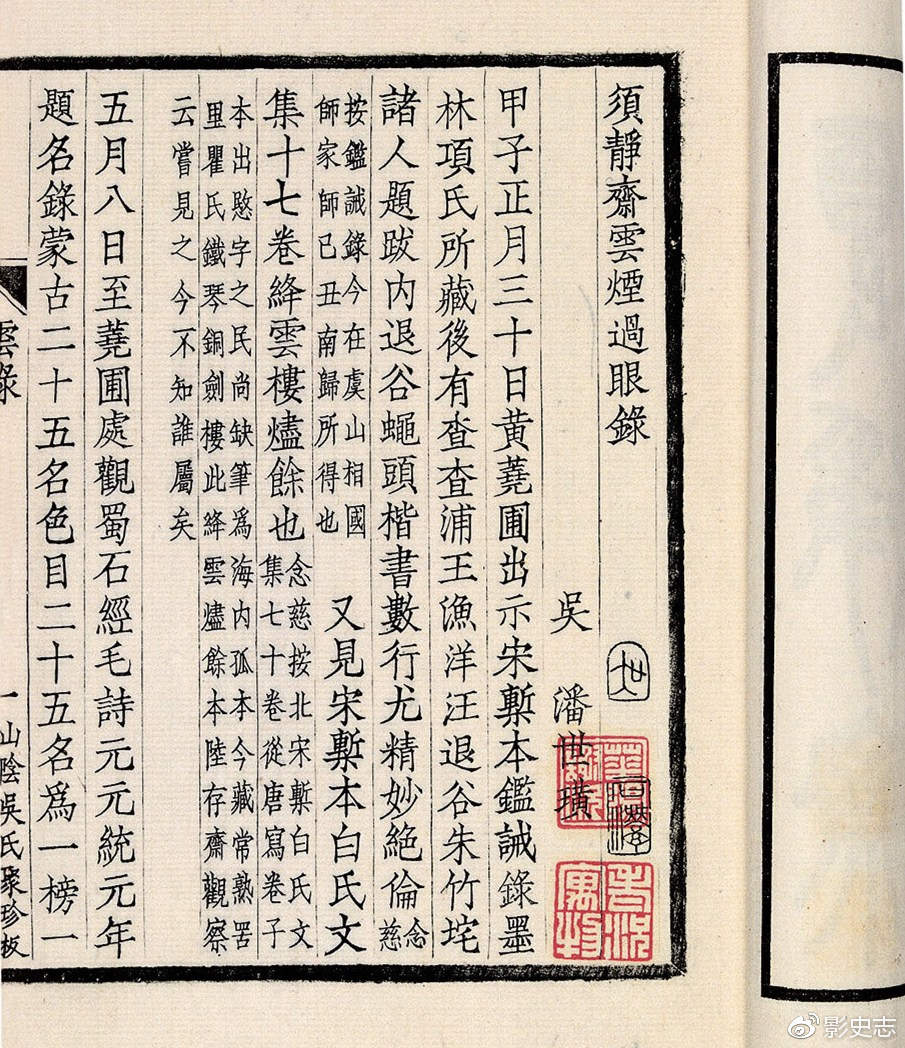 須靜齋雲煙過眼錄
吳 潘世璜
甲子正月三十日黃蕘圃出示宋槧本鑑誡錄墨
林項氏所藏後有查查浦王漁洋汪退谷朱竹垞
諸人題跋內退谷蠅頭楷書數行尤精妙絕倫念慈
按鑑誡錄今在虞山相國
師家師已丑南歸所得也
又見宋槧本白氏文
集十七卷絳雲樓燼餘也
念慈按北宋槧白氏文
集七十卷從唐寫卷子
本出愍字之民尚缺筆爲海內孤本今藏常熟罟
里瞿氏鐵琴銅劍樓此絳雲燼餘本陸存齋觀察
云嘗見之今不知誰屬矣
五月八日至蕘圃處觀蜀石經毛詩元元統元年
題名錄蒙古二十五名色目二十五名爲一榜一
雲錄
一
山陰吳氏聚珍板
影史志